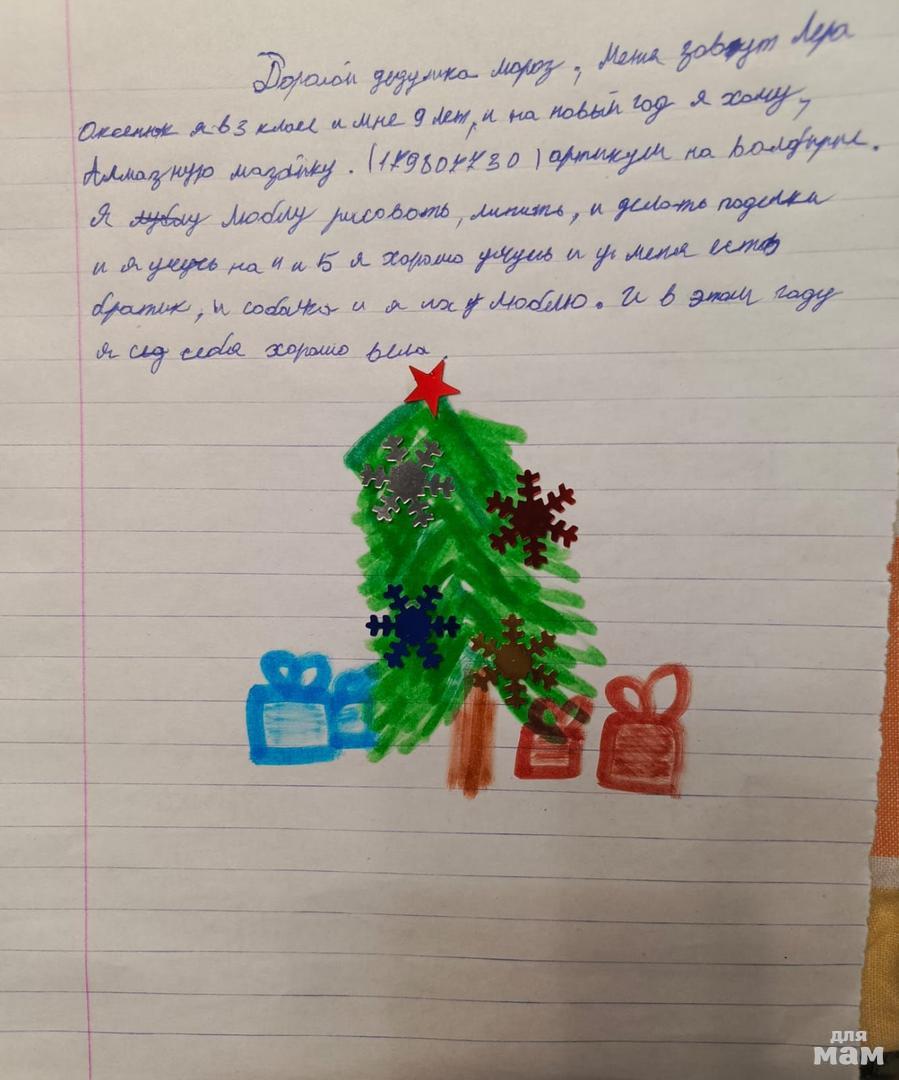 Дорогой дедушка мороз, меня зовут Лера
Оксенюк я в 3 класе и мне 9 лет, и на новый год я хочу,
Алмазную мазайку. (179807730) артикул на Валдбрис.
Я люблу рисовать, липить, и делать поделки
и я учусь на 4 и 5 я хорошо учусь и у меня есть
братик, и собачка и я их люблю. И в этом году
я себя хорошо вела.
для
мам